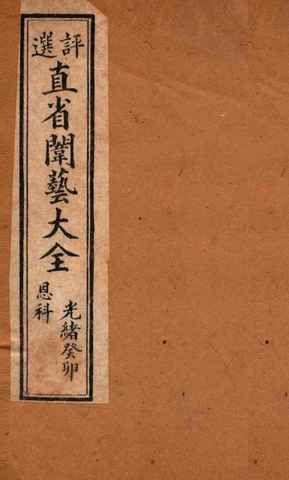 評選
直省闈藝大全
光緒癸卯
恩科